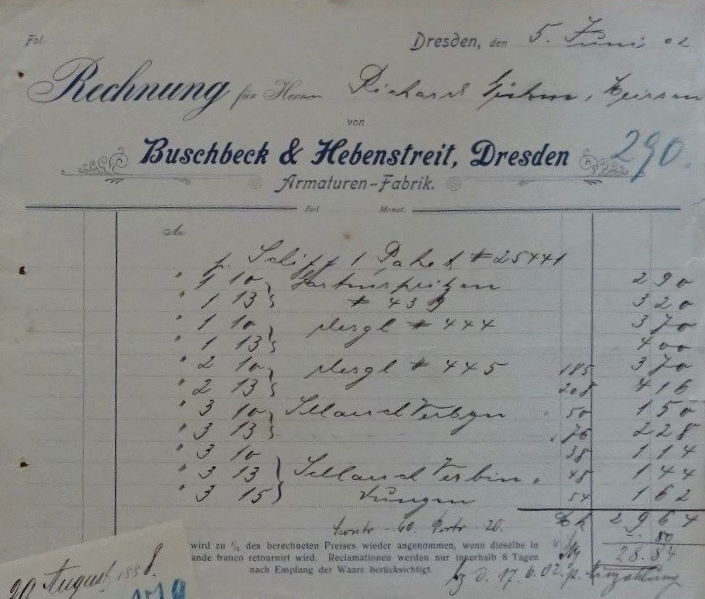 Fol.
Dresden, den 5. Juni 02
Rechnung für Herrn Richard
von
Buschbeck & Hebenstreit, Dresden
290.
Armaturen-Fabrik.
Ziel Monat.
An
p. Schiff 1 Paket # 25441
" 1 10 } Gartenspritzen 290
" 1 13 } # 439 320
" 1 10 } desgl # 444 370
" 1 13 } 400
" 2 10 } desgl # 445 185 370
" 2 13 } 208 416
" 3 10 } 50 150
" 3 13 } 76 228
" 3 10 } 38 114
" 3 13 } Schlauch Verbin 48 144
" 3 15 } dungen 54 162
29 64
80
28.84
wird zu des berechneten Preises wieder angenommen, wenn dieselbe in
ande franco retournirt wird. Reclamationen werden nur innerhalb 8 Tagen
nach Empfang der Waare berücksichtigt.
d. 17.6.02.
20 August 1888.